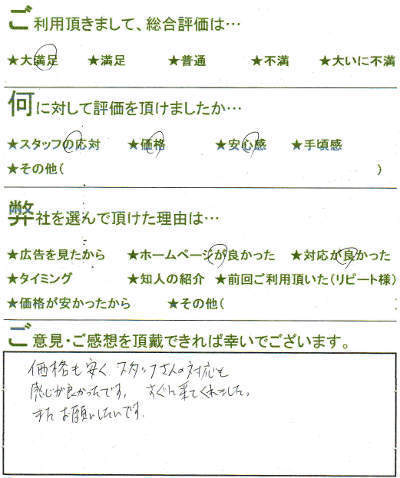 ご利用頂きまして、総合評価は…
★大満足 ★満足 ★普通 ★不満 ★大いに不満
何に対して評価を頂けましたか…
★スタッフの応対 ★価格 ★安心感 ★手頃感
★その他( )
弊社を選んで頂けた理由は…
★広告を見たから ★ホームページが良かった ★対応が良かった
★タイミング ★知人の紹介 ★前回ご利用頂いた(リピート様)
★価格が安かったから ★その他(
ご意見・ご感想を頂戴できれば幸いでございます。
価格も安く、スタッフさんの対応も
感じが良かったです。すぐに来てくれました。
またお願いしたいです。